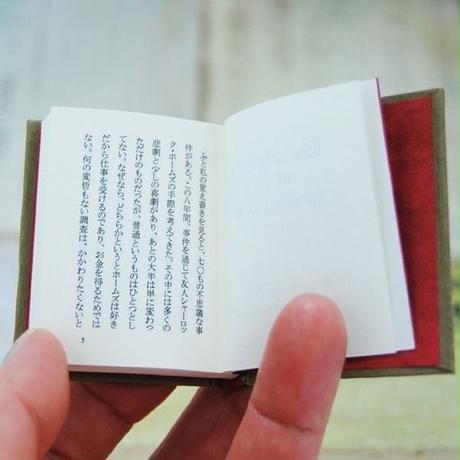 ふと私の覚え書きを見ると、七〇もの不思議な事
件がある。この八年間、事件を通じて友人シャーロッ
ク・ホームズの手際を考えてきた。その中には多くの
悲劇と少しの喜劇があり、あとの大半は単に変わっ
ただけのものだったが、普通というものはひとつとし
てない。なぜなら、どちらかというとホームズは好き
だから仕事を受けるのであり、お金を得るためでは
ない。何の変哲もない調査は、かかわりたくないと
5